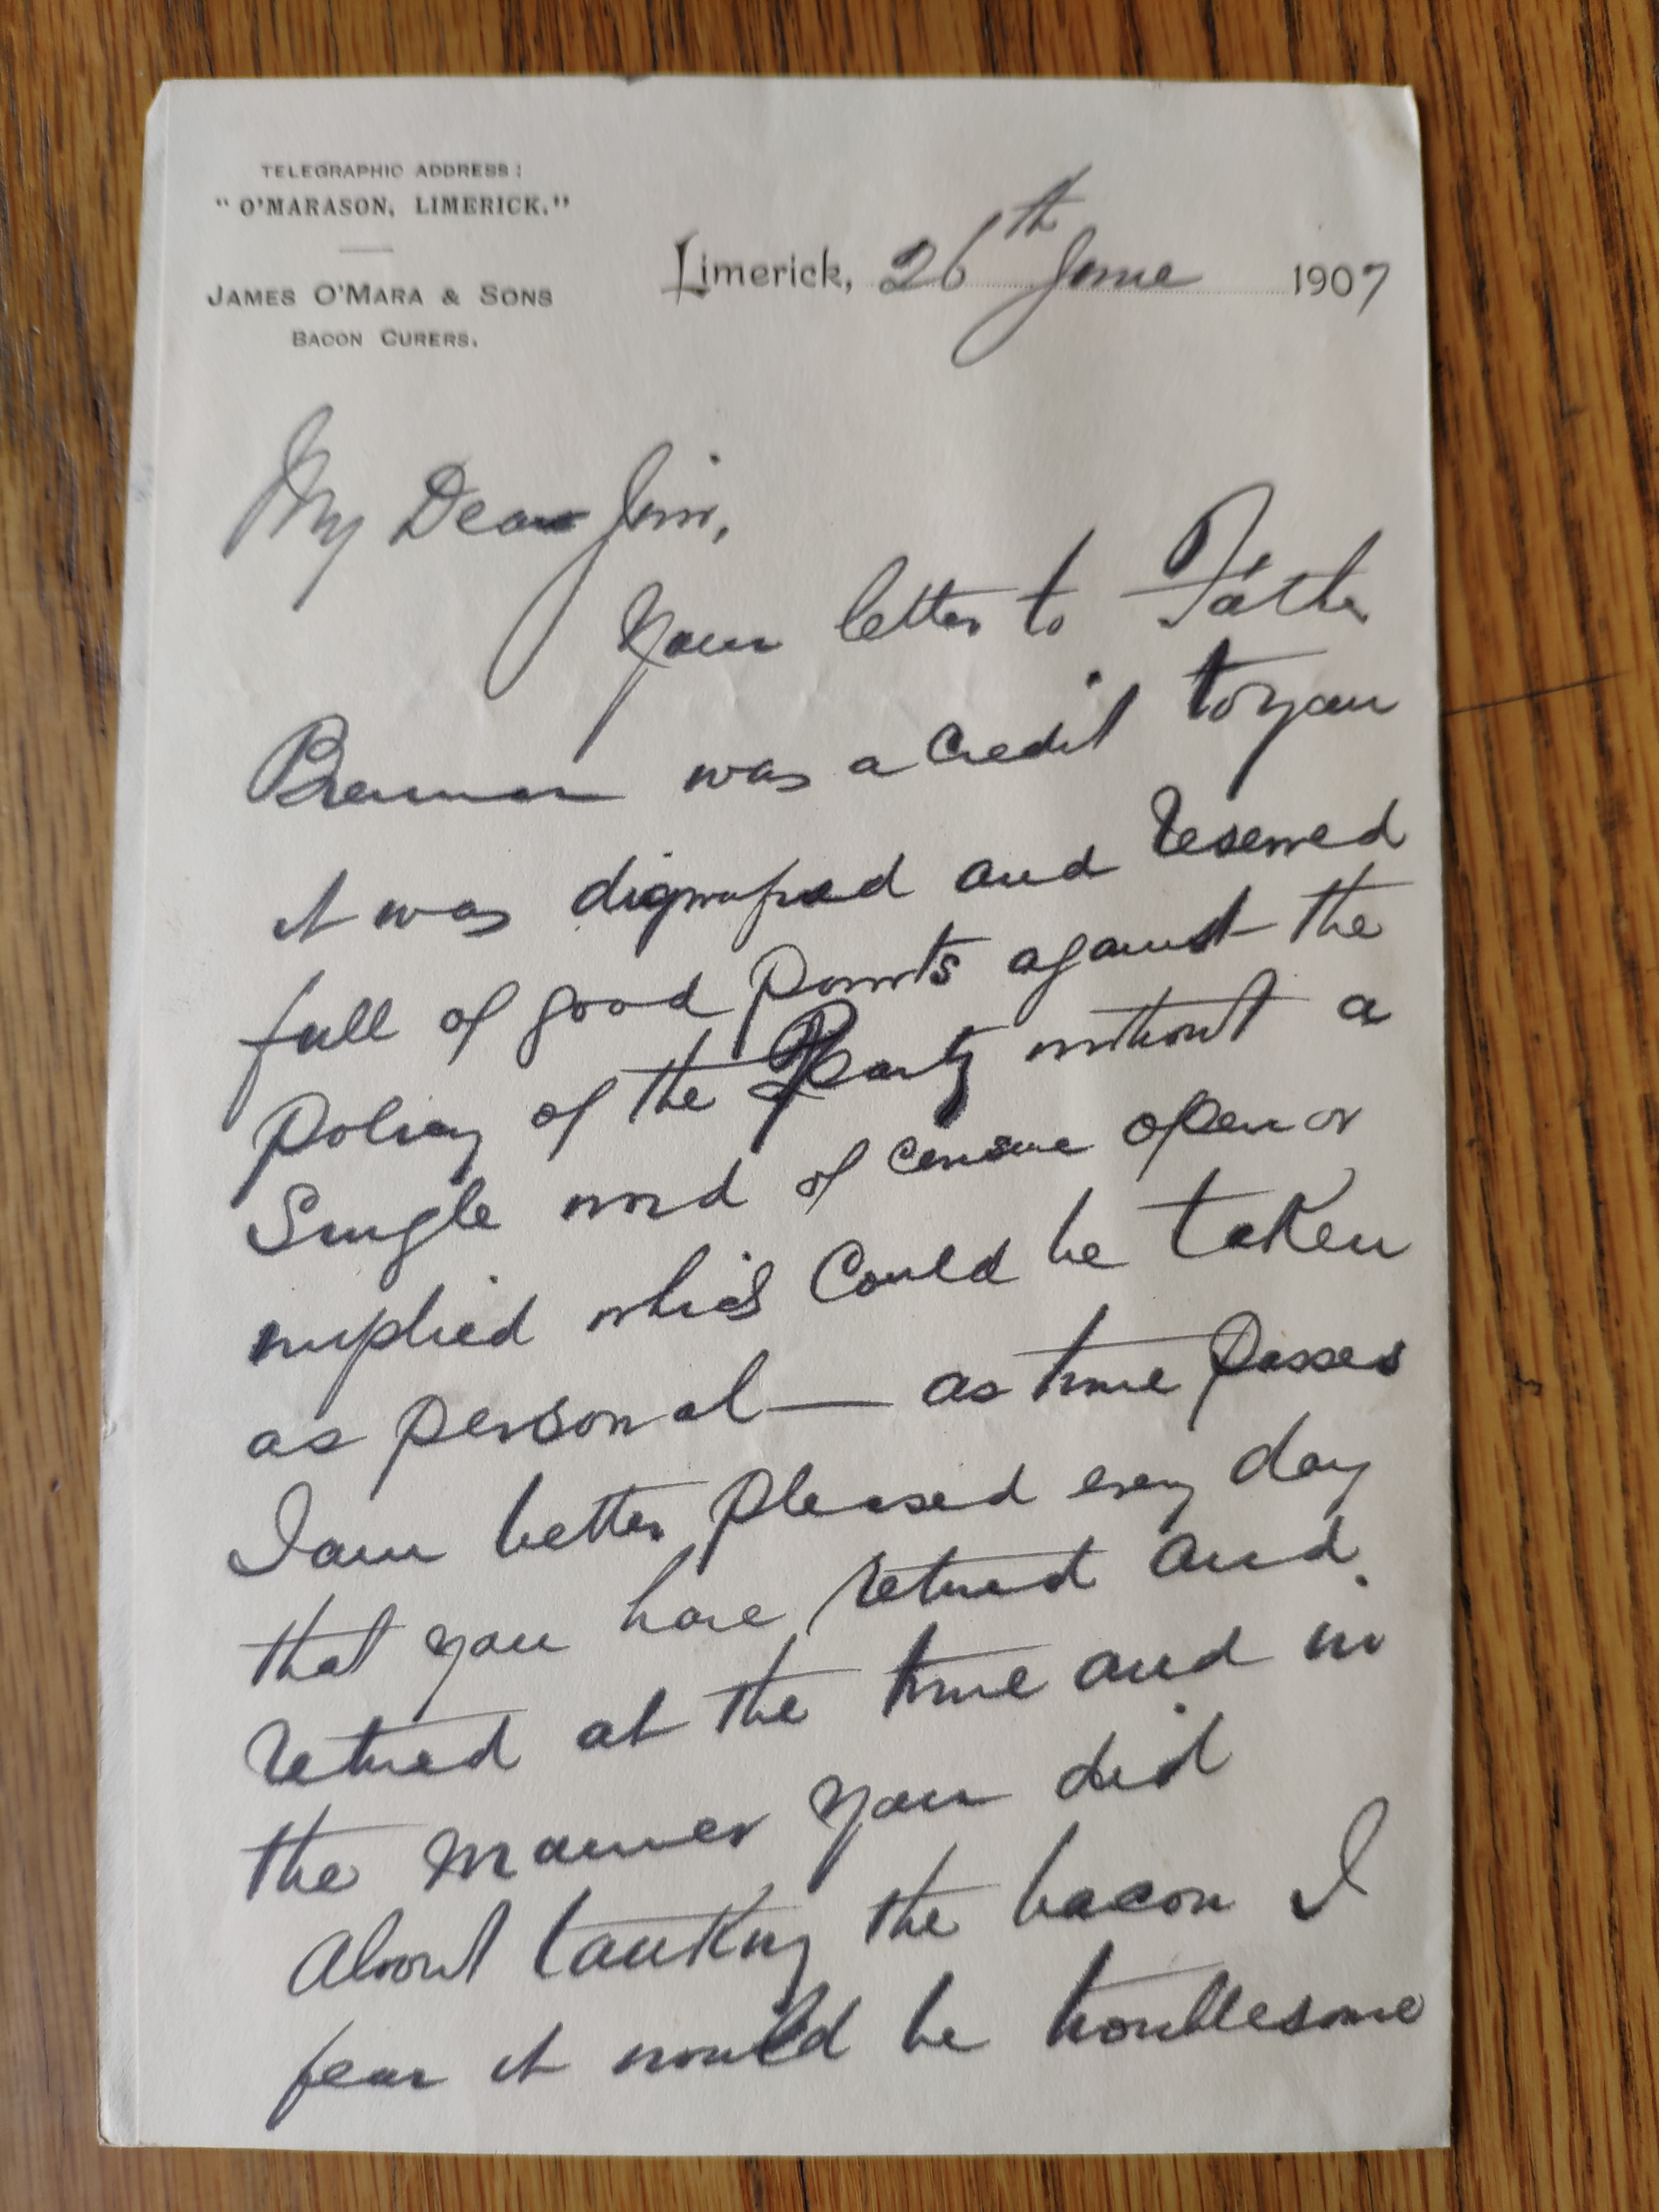 TELEGRAPHIC ADDRESS:
"O'MARASON, LIMERICK."
JAMES O'MARA & SONS
BACON CURERS.
Limerick, 26th June 1907
My Dear Jim,
Your letter to Father
Brennan was a credit to you
it was dignified and reserved
full of good points against the
policy of the Party without a
Single word of censure open or
implied which Could be taken
as personal — as time passes
I am better pleased every day
that you have retired and
retired at the time and in
the manner you did
About tanking the bacon I
fear it would be troublesome